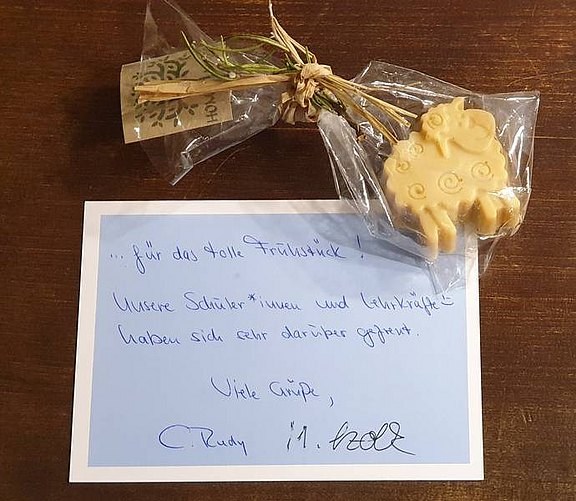 ... für das tolle Frühstück!
Unsere Schüler*innen und Lehrkräfte
haben sich sehr darüber gefreut.
Viele Grüße,
C. Rudy